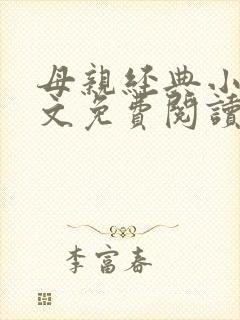 母親經典小
文免費閱讀
李富春